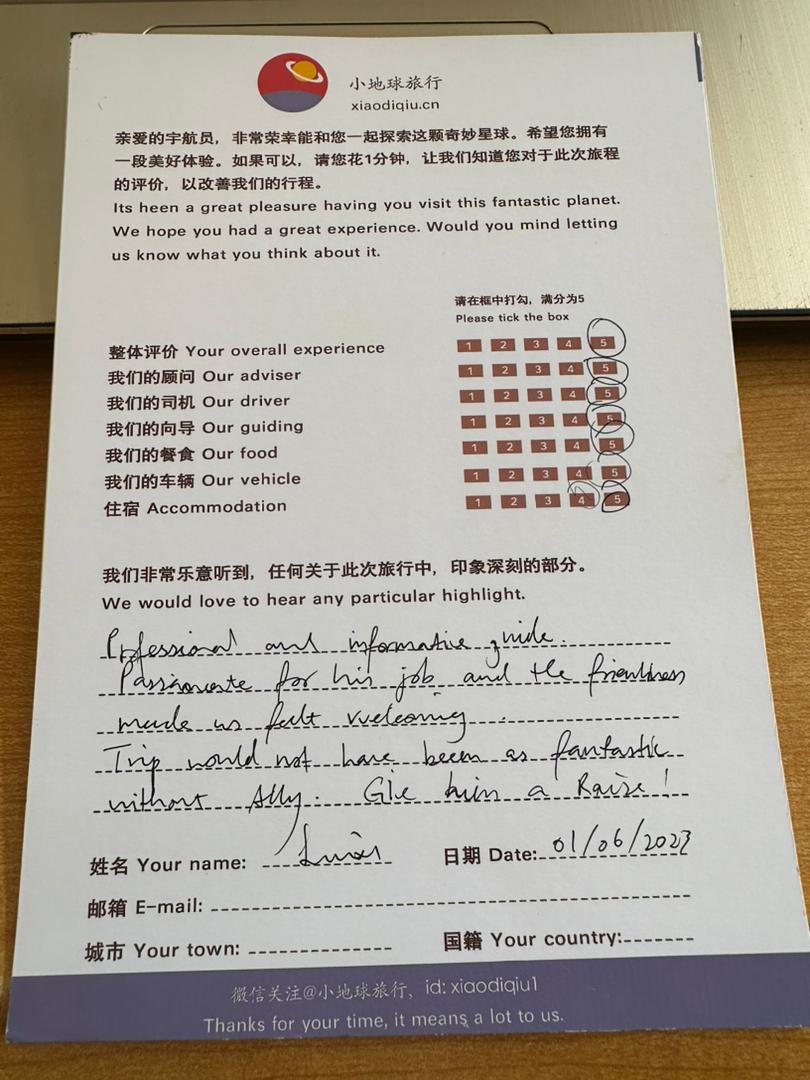 小地球旅行
xiaodiqiu.cn
亲爱的宇航员，非常荣幸能和您一起探索这颗奇妙星球。希望您拥有
一段美好体验。如果可以，请您花1分钟，让我们知道您对于此次旅程
的评价，以改善我们的行程。
Its heen a great pleasure having you visit this fantastic planet.
We hope you had a great experience. Would you mind letting
us know what you think about it.
请在框中打勾，满分为5
Please tick the box
整体评价 Your overall experience 1 2 3 4 5
我们的顾问 Our adviser 1 2 3 4 5
我们的司机 Our driver 1 2 3 4 5
我们的向导 Our guiding 1 2 3 4 5
我们的餐食 Our food 1 2 3 4 5
我们的车辆 Our vehicle 1 2 3 4 5
住宿 Accommodation 1 2 3 4 5
我们非常乐意听到，任何关于此次旅行中，印象深刻的部分。
We would love to hear any particular highlight.
Professional and informative guide.
Passionate for his job and the friendliness
made us felt welcoming.
Trip would not have been as fantastic
without Ally. Give him a Raise!
姓名 Your name: 日期 Date: 01/06/2023
邮箱 E-mail:
城市 Your town: 国籍 Your country:
微信关注@小地球旅行，id: xiaodiqiu1
Thanks for your time, it means a lot to us.